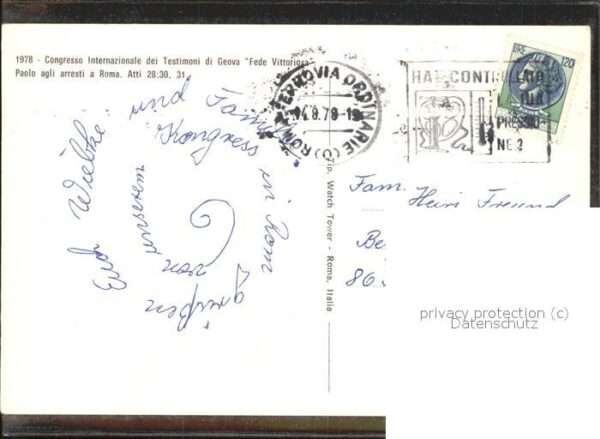 1978 - Congresso Internazionale dei Testimoni di Geova "Fede Vittoriosa"
Paolo agli arresti a Roma. Atti 28:30, 31
Euch Wiebke und Fam.
grüßen von unserem
Kongress in Rom
Tip. Watch Tower - Roma, Italia
ROMA FERROVIA ORDINARIE (C)
14.8.78-19
HAI CONTROLLATO
LA TUA
PRESSIO-
NE ?
LIRE 120
Fam.
Heini Freund
Be
86
privacy protection (c)
Datenschutz